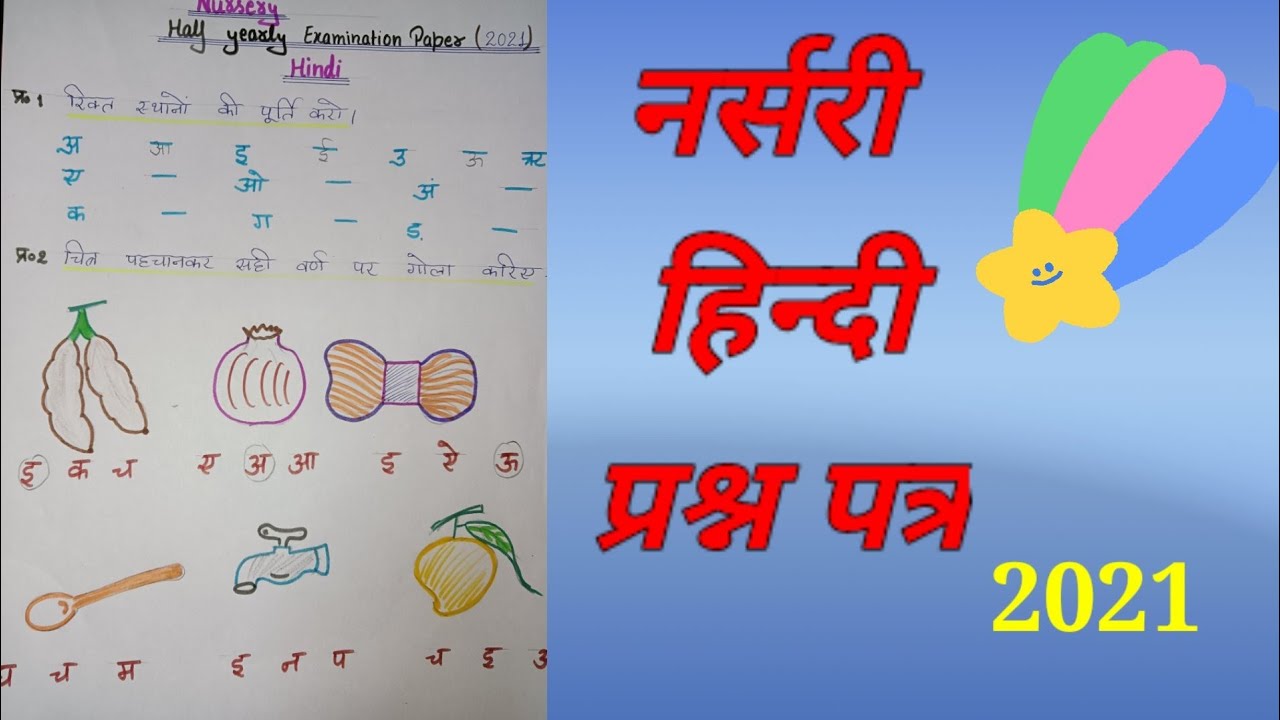 Nursery
Half yearly Examination Paper (2021)
Hindi
प्र० 1 रिक्त स्थानों की पूर्ति करो।
अ आ इ ई उ ऊ ऋ
ए — ओ — अं —
क — ग — ड. —
प्र०2 चित्र पहचानकर सही वर्ण पर गोला करिए
इ क च ए अ आ इ ऐ ऊ
च म इ न प च इ
नर्सरी
हिन्दी
प्रश्न पत्र
2021